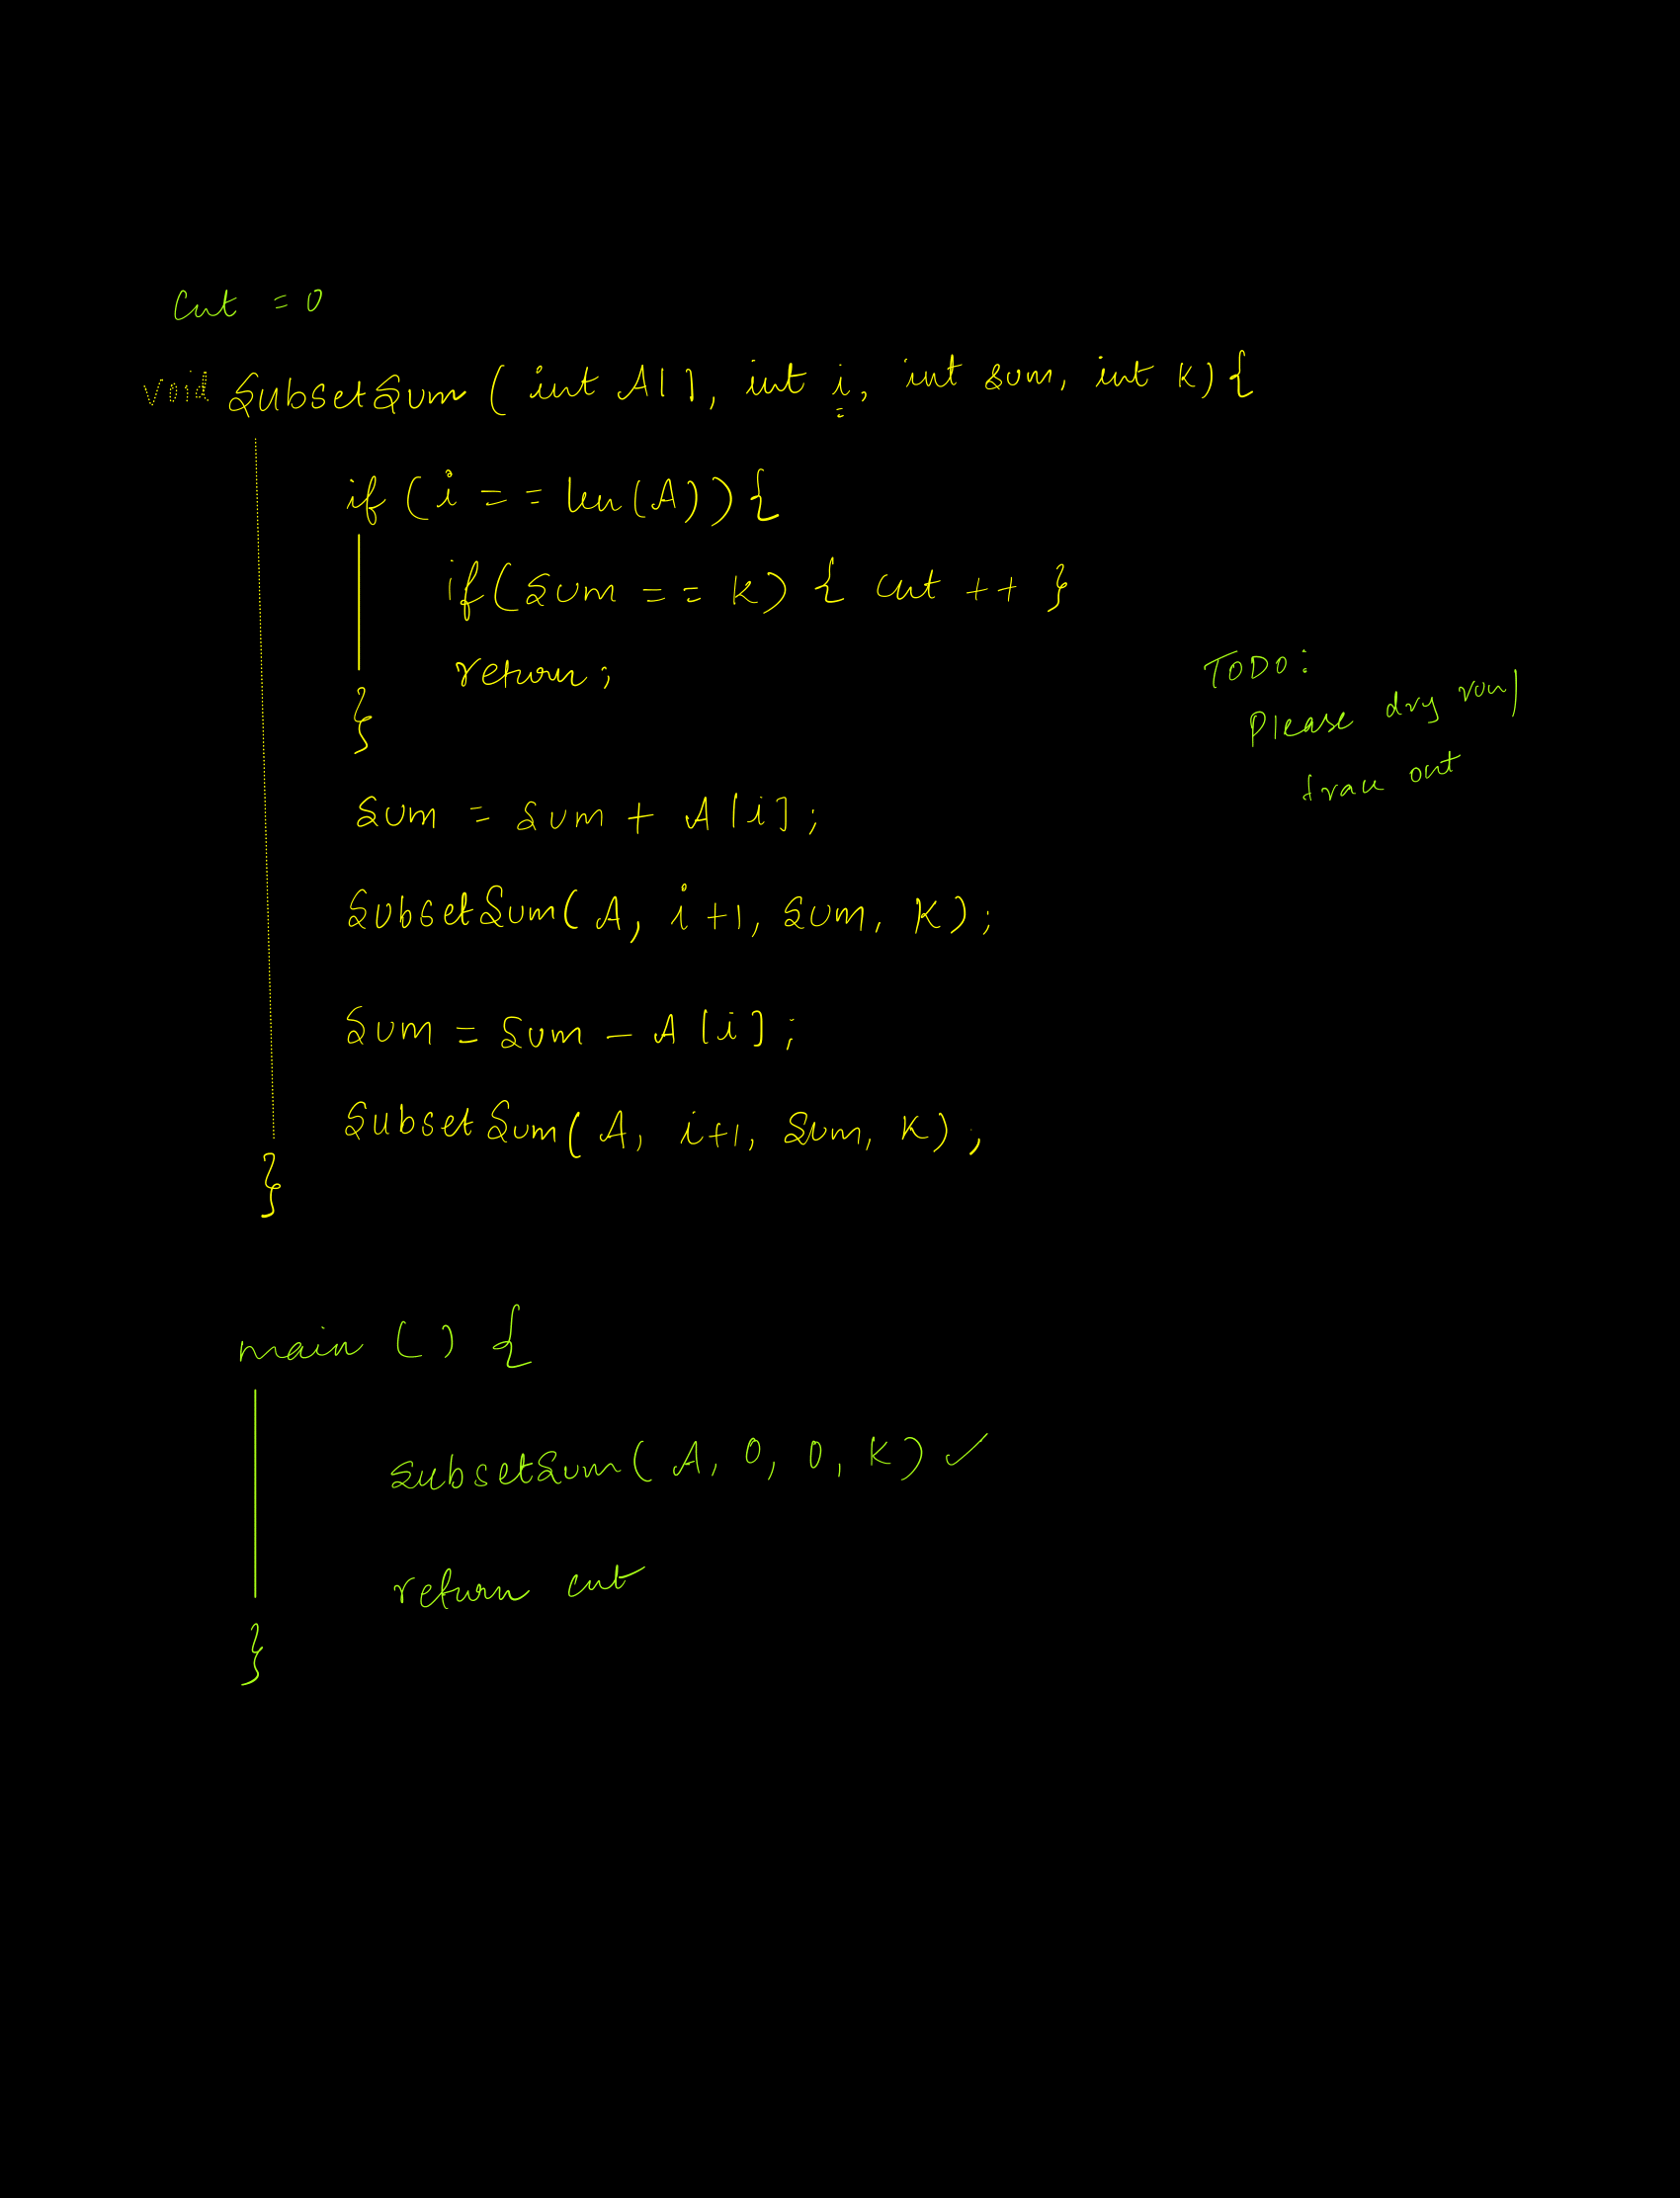 Cnt = 0
void SubsetSum ( int A[], int i, int sum, int K) {
if (i == len(A)) {
if (sum == K) { cnt ++ }
return;
}
Sum = Sum + A[i];
SubsetSum( A, i+1, Sum, K);
Sum = Sum - A[i];
SubsetSum( A, i+1, Sum, K);
}
TODO:
Please dry run/
trace out
main () {
SubsetSum( A, 0, 0, K) ✓
return cnt
}